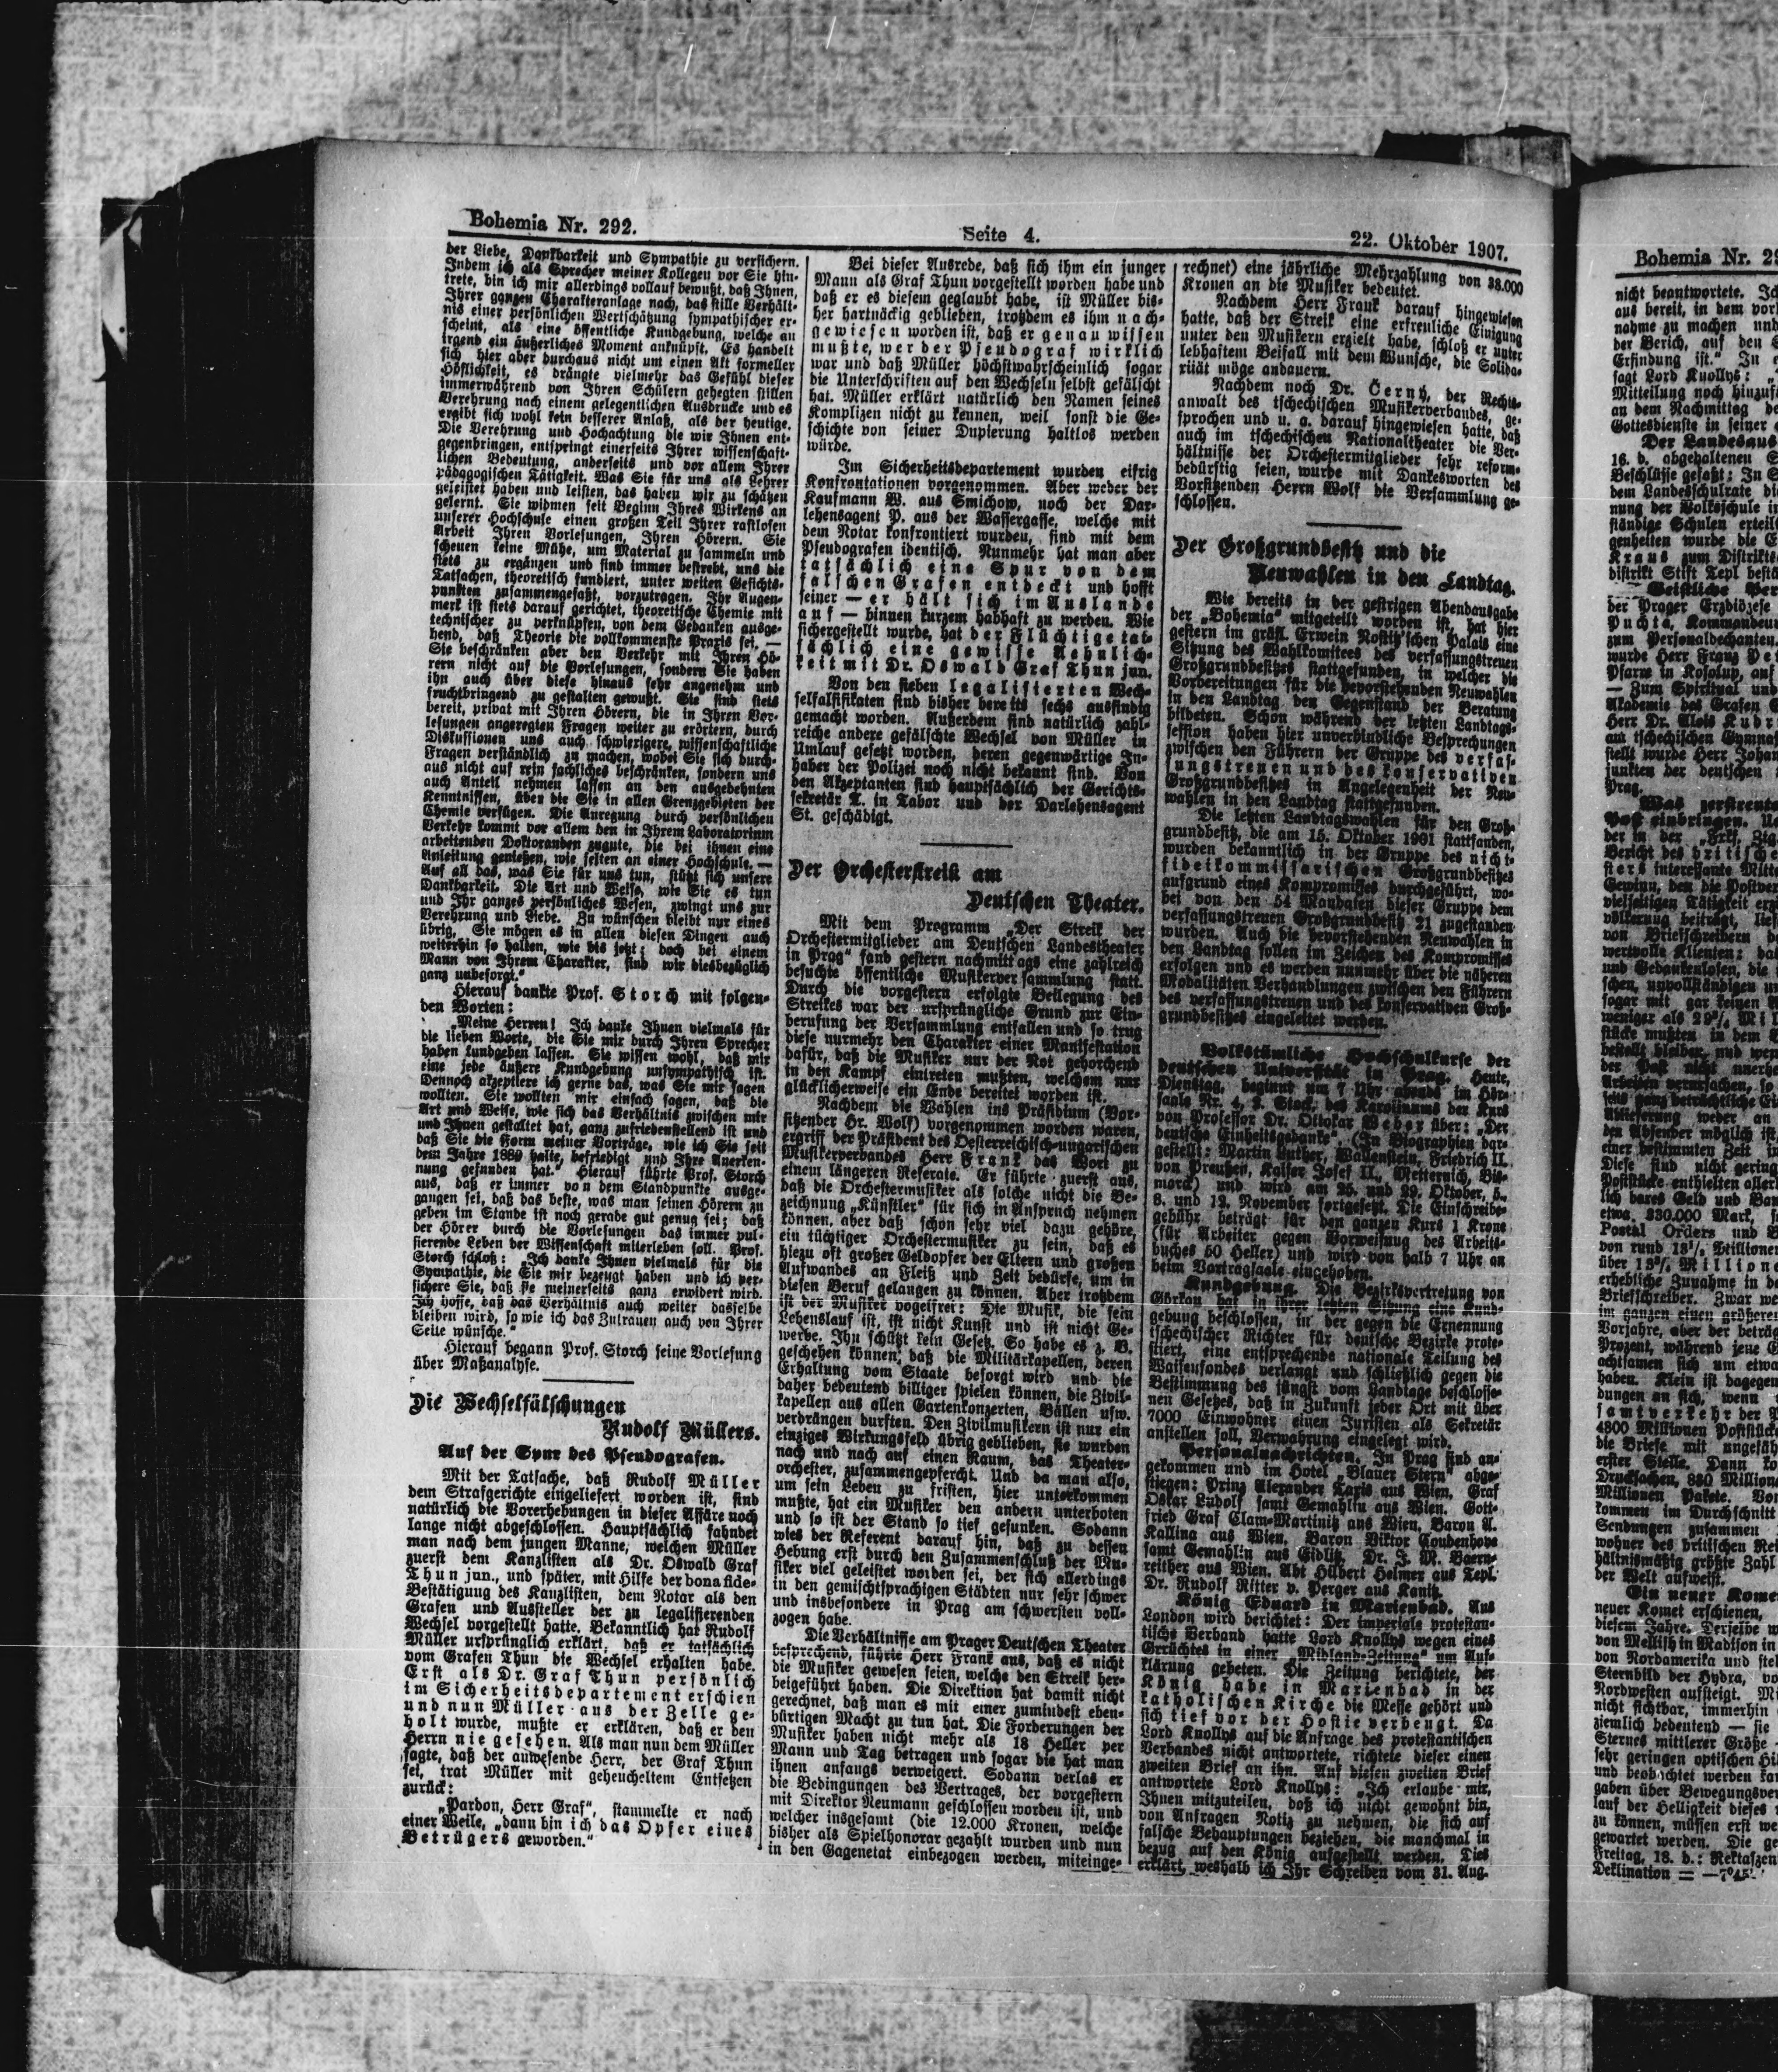 Bohemia Nr. 292.
Seite 4.
22. Oktober 1907.
der Liebe, Dankbarkeit und Sympathie zu versichern.
Indem ich als Sprecher meiner Kollegen vor Sie hin-
trete, bin ich mir allerdings vollauf bewußt, daß Ihnen,
Ihrer ganzen Charakteranlage nach, das stille Verhält-
nis einer persönlichen Wertschätzung sympathischer er-
scheint, als eine öffentliche Kundgebung, welche an
irgend ein äußerliches Moment anknüpft. Es handelt
sich hier aber durchaus nicht um einen Akt formeller
Höflichkeit, es drängte vielmehr das Gefühl dieser
immerwährend von Ihren Schülern gehegten stillen
Verehrung nach einem gelegentlichen Ausdrucke und es
ergibt sich wohl kein besserer Anlaß, als der heutige.
Die Verehrung und Hochachtung die wir Ihnen ent-
gegenbringen, entspringt einerseits Ihrer wissenschaft-
lichen Bedeutung, anderseits und vor allem Ihrer
pädagogischen Tätigkeit. Was Sie für uns als Lehrer
geleistet haben und leisten, das haben wir zu schätzen
gelernt. Sie widmen seit Beginn Ihres Wirkens an
unserer Hochschule einen großen Teil Ihrer rastlosen
Arbeit Ihren Vorlesungen, Ihren Hörern. Sie
scheuen keine Mühe, um Material zu sammeln und
stets zu ergänzen und sind immer bestrebt, uns die
Tatsachen, theoretisch fundiert, unter weiten Gesichts-
punkten zusammengefaßt, vorzutragen. Ihr Augen-
merk ist stets darauf gerichtet, theoretische Chemie mit
technischer zu verknüpfen, von dem Gedanken ausge-
hend, daß Theorie die vollkommenste Praxis sei. —
Sie beschränken aber den Verkehr mit Ihren Hö-
rern nicht auf die Vorlesungen, sondern Sie haben
ihn auch über diese hinaus sehr angenehm und
fruchtbringend zu gestalten gewußt. Sie sind stets
bereit, privat mit Ihren Hörern, die in Ihren Vor-
lesungen angeregten Fragen weiter zu erörtern, durch
Diskussionen uns auch schwierigere, wissenschaftliche
Fragen verständlich zu machen, wobei Sie sich durch-
aus nicht auf rein fachliches beschränken, sondern uns
auch Anteil nehmen lassen an den ausgedehnten
Kenntnissen, über die Sie in allen Grenzgebieten der
Chemie verfügen. Die Anregung durch persönlichen
Verkehr kommt vor allem den in Ihrem Laboratorium
arbeitenden Doktoranden zugute, die bei ihnen eine
Anleitung genießen, wie selten an einer Hochschule. —
Auf all das, was Sie für uns tun, stützt sich unsere
Dankbarkeit. Die Art und Weise, wie Sie es tun
und Ihr ganzes persönliches Wesen, zwingt uns zur
Verehrung und Liebe. Zu wünschen bleibt nur eines
übrig, Sie mögen es in allen diesen Dingen auch
weiterhin so halten, wie bis jetzt; doch bei einem
Mann von Ihrem Charakter, sind wir diesbezüglich
ganz unbesorgt."
Hierauf dankte Prof. Storch mit folgen-
den Worten:
„Meine Herren! Ich danke Ihnen vielmals für
die lieben Worte, die Sie mir durch Ihren Sprecher
haben kundgeben lassen. Sie wissen wohl, daß mir
eine jede äußere Kundgebung unsympathisch ist.
Dennoch akzeptiere ich gerne das, was Sie mir sagen
wollten. Sie wollten mir einfach sagen, daß die
Art und Weise, wie sich das Verhältnis zwischen mir
und Ihnen gestaltet hat, ganz zufriedenstellend ist und
daß Sie die Form meiner Vorträge, wie ich Sie seit
dem Jahre 1889 halte, befriedigt und Ihre Anerken-
nung gefunden hat." Hierauf führte Prof. Storch
aus, daß er immer von dem Standpunkte ausge-
gangen sei, daß das beste, was man seinen Hörern zu
geben im Stande ist noch gerade gut genug sei; daß
der Hörer durch die Vorlesungen das immer pul-
sierende Leben der Wissenschaft miterleben soll. Prof.
Storch schloß: „Ich danke Ihnen vielmals für die
Sympathie, die Sie mir bezeugt haben und ich ver-
sichere Sie, daß sie meinerseits ganz erwidert wird.
Ich hoffe, daß das Verhältnis auch weiter dasselbe
bleiben wird, so wie ich das Zutrauen auch von Ihrer
Seite wünsche."
Hierauf begann Prof. Storch seine Vorlesung
über Maßanalyse.
Die Wechselfälschungen
Rudolf Müllers.
Auf der Spur des Pseudografen.
Mit der Tatsache, daß Rudolf Müller
dem Strafgerichte eingeliefert worden ist, sind
natürlich die Vorerhebungen in dieser Affäre noch
lange nicht abgeschlossen. Hauptsächlich fahndet
man nach dem jungen Manne, welchen Müller
zuerst dem Kanzlisten als Dr. Oswald Graf
Thun jun., und später, mit Hilfe der bona fide-
Bestätigung des Kanzlisten, dem Notar als den
Grafen und Aussteller der zu legalisierenden
Wechsel vorgestellt hatte. Bekanntlich hat Rudolf
Müller ursprünglich erklärt, daß er tatsächlich
vom Grafen Thun die Wechsel erhalten habe.
Erst als Dr. Graf Thun persönlich
im Sicherheitsdepartement erschien
und nun Müller aus der Zelle ge-
holt wurde, mußte er erklären, daß er den
Herrn nie gesehen. Als man nun dem Müller
sagte, daß der anwesende Herr, der Graf Thun
sei, trat Müller mit geheucheltem Entsetzen
zurück:
„Pardon, Herr Graf", stammelte er nach
einer Weile, „dann bin ich das Opfer eines
Betrügers geworden."
Bei dieser Ausrede, daß sich ihm ein junger
Mann als Graf Thun vorgestellt worden habe und
daß er es diesem geglaubt habe, ist Müller bis-
her hartnäckig geblieben, trotzdem es ihm nach-
gewiesen worden ist, daß er genau wissen
mußte, wer der Pseudograf wirklich
war und daß Müller höchstwahrscheinlich sogar
die Unterschriften auf den Wechseln selbst gefälscht
hat. Müller erklärt natürlich den Namen seines
Komplizen nicht zu kennen, weil sonst die Ge-
schichte von seiner Dupierung haltlos werden
würde.
Im Sicherheitsdepartement wurden eifrig
Konfrontationen vorgenommen. Aber weder der
Kaufmann W. aus Smichow, noch der Dar-
lehensagent P. aus der Wassergasse, welche mit
dem Notar konfrontiert wurden, sind mit dem
Pseudografen identisch. Nunmehr hat man aber
tatsächlich eine Spur von dem
falschen Grafen entdeckt und hofft
seiner — er hält sich im Auslande
auf — binnen kurzem habhaft zu werden. Wie
sichergestellt wurde, hat der Flüchtige tat-
sächlich eine gewisse Aehnlich-
keit mit Dr. Oswald Graf Thun jun.
Von den sieben legalisierten Wech-
selfalsifikaten sind bisher bereits sechs ausfindig
gemacht worden. Außerdem sind natürlich zahl-
reiche andere gefälschte Wechsel von Müller in
Umlauf gesetzt worden, deren gegenwärtige In-
haber der Polizei noch nicht bekannt sind. Von
den Akzeptanten sind hauptsächlich der Gerichts-
sekretär T. in Tabor und der Darlehensagent
St. geschädigt.
Der Orchesterstreik am
Deutschen Theater.
Mit dem Programm „Der Streik der
Orchestermitglieder am Deutschen Landestheater
in Prag" fand gestern nachmittags eine zahlreich
besuchte öffentliche Musikerversammlung statt.
Durch die vorgestern erfolgte Beilegung des
Streikes war der ursprüngliche Grund zur Ein-
berufung der Versammlung entfallen und so trug
diese nurmehr den Charakter einer Manifestation
dafür, daß die Musiker nur der Not gehorchend
in den Kampf eintreten mußten, welchem nur
glücklicherweise ein Ende bereitet worden ist.
Nachdem die Wahlen ins Präsidium (Vor-
sitzender Hr. Wolf) vorgenommen worden waren,
ergriff der Präsident des Oesterreichisch-ungarischen
Musikerverbandes Herr Frank das Wort zu
einem längeren Referate. Er führte zuerst aus,
daß die Orchestermusiker als solche nicht die Be-
zeichnung „Künstler" für sich in Anspruch nehmen
können, aber daß schon sehr viel dazu gehöre,
ein tüchtiger Orchestermusiker zu sein, daß es
hiezu oft großer Geldopfer der Eltern und großen
Aufwandes an Fleiß und Zeit bedürfe, um in
diesen Beruf gelangen zu können. Aber trotzdem
ist der Musiker vogelfrei: Die Musik, die sein
Lebenslauf ist, ist nicht Kunst und ist nicht Ge-
werbe. Ihn schützt kein Gesetz. So habe es z. B.
geschehen können, daß die Militärkapellen, deren
Erhaltung vom Staate besorgt wird und die
daher bedeutend billiger spielen können, die Zivil-
kapellen aus allen Gartenkonzerten, Bällen usw.
verdrängen durften. Den Zivilmusikern ist nur ein
einziges Wirkungsfeld übrig geblieben, sie wurden
nach und nach auf einen Raum, das Theater-
orchester, zusammengepfercht. Und da man also,
um sein Leben zu fristen, hier unterkommen
mußte, hat ein Musiker den andern unterboten
und so ist der Stand so tief gesunken. Sodann
wies der Referent darauf hin, daß zu dessen
Hebung erst durch den Zusammenschluß der Mu-
siker viel geleistet worden sei, der sich allerdings
in den gemischtsprachigen Städten nur sehr schwer
und insbesondere in Prag am schwersten voll-
zogen habe.
Die Verhältnisse am Prager Deutschen Theater
besprechend, führte Herr Frank aus, daß es nicht
die Musiker gewesen seien, welche den Streik her-
beigeführt haben. Die Direktion hat damit nicht
gerechnet, daß man es mit einer zumindest eben-
bürtigen Macht zu tun hat. Die Forderungen der
Musiker haben nicht mehr als 18 Heller per
Mann und Tag betragen und sogar die hat man
ihnen anfangs verweigert. Sodann verlas er
die Bedingungen des Vertrages, der vorgestern
mit Direktor Neumann geschlossen worden ist, und
welcher insgesamt (die 12.000 Kronen, welche
bisher als Spielhonorar gezahlt wurden und nun
in den Gagenetat einbezogen werden, miteinge-
rechnet) eine jährliche Mehrzahlung von 38.000
Kronen an die Musiker bedeutet.
Nachdem Herr Frank darauf hingewiesen
hatte, daß der Streik eine erfreuliche Einigung
unter den Musikern erzielt habe, schloß er unter
lebhaftem Beifall mit dem Wunsche, die Solida-
rität möge andauern.
Nachdem noch Dr. Černý, der Rechts-
anwalt des tschechischen Musikerverbandes, ge-
sprochen und u. a. darauf hingewiesen hatte, daß
auch im tschechischen Nationaltheater die Ver-
hältnisse der Orchestermitglieder sehr reform-
bedürftig seien, wurde mit Dankesworten des
Vorsitzenden Herrn Wolf die Versammlung ge-
schlossen.
Der Großgrundbesitz und die
Neuwahlen in den Landtag.
Wie bereits in der gestrigen Abendausgabe
der „Bohemia" mitgeteilt worden ist, hat hier
gestern im gräfl. Erwein Nostitz'schen Palais eine
Sitzung des Wahlkomitees des verfassungstreuen
Großgrundbesitzes stattgefunden, in welcher die
Vorbereitungen für die bevorstehenden Neuwahlen
in den Landtag den Gegenstand der Beratung
bildeten. Schon während der letzten Landtags-
session haben hier unverbindliche Besprechungen
zwischen den Führern der Gruppe des verfas-
sungstreuen und des konservativen
Großgrundbesitzes in Angelegenheit der Neu-
wahlen in den Landtag stattgefunden.
Die letzten Landtagswahlen für den Groß-
grundbesitz, die am 15. Oktober 1901 stattfanden,
wurden bekanntlich in der Gruppe des nicht-
fideikommissarischen Großgrundbesitzes
aufgrund eines Kompromisses durchgeführt, wo-
bei von den 54 Mandaten dieser Gruppe dem
verfassungstreuen Großgrundbesitz 21 zugestanden
wurden. Auch die bevorstehenden Neuwahlen in
den Landtag sollen im Zeichen des Kompromisses
erfolgen und es werden nunmehr über die näheren
Modalitäten Verhandlungen zwischen den Führern
des verfassungstreuen und des konservativen Groß-
grundbesitzes eingeleitet werden.
Volkstümliche Hochschulkurse der
deutschen Universität in Prag. Heute,
Dienstag, beginnt um 7 Uhr abends im Hör-
saale Nr. 4, 2. Stock, des Karolinums der Kurs
von Professor Dr. Ottokar Weber über: „Der
deutsche Einheitsgedanke". (In Biographien dar-
gestellt: Martin Luther, Wallenstein, Friedrich II.
von Preußen, Kaiser Josef II., Metternich, Bis-
marck) und wird am 25. und 29. Oktober, 5.,
8. und 12. November fortgesetzt. Die Einschreibe-
gebühr beträgt für den ganzen Kurs 1 Krone
(für Arbeiter gegen Vorweisung des Arbeits-
buches 50 Heller) und wird von halb 7 Uhr an
beim Vortragsaale eingehoben.
Kundgebung. Die Bezirksvertretung von
Görkau hat in ihrer letzten Sitzung eine Kund-
gebung beschlossen, in der gegen die Ernennung
tschechischer Richter für deutsche Bezirke prote-
stiert, eine entsprechende nationale Teilung des
Waisenfondes verlangt und schließlich gegen die
Bestimmung des jüngst vom Landtage beschlosse-
nen Gesetzes, daß in Zukunft jeder Ort mit über
7000 Einwohner einen Juristen als Sekretär
anstellen soll, Verwahrung eingelegt wird.
Personalnachrichten. In Prag sind an-
gekommen und im Hotel „Blauer Stern" abge-
stiegen: Prinz Alexander Taxis aus Wien, Graf
Oskar Ludolf samt Gemahlin aus Wien, Gott-
fried Graf Clam-Martinitz aus Wien, Baron A.
Kallina aus Wien, Baron Viktor Coudenhove
samt Gemahlin aus Eidlitz, Dr. J. M. Baern-
reither aus Wien, Abt Hilbert Helmer aus Tepl.
Dr. Rudolf Ritter v. Perger aus Kanitz.
König Eduard in Marienbad. Aus
London wird berichtet: Der imperiale protestan-
tische Verband hatte Lord Knollys wegen eines
Gerüchtes in einer „Midland-Zeitung" um Auf-
klärung gebeten. Die Zeitung berichtete, der
König habe in Marienbad in der
katholischen Kirche die Messe gehört und
sich tief vor der Hostie verbeugt. Da
Lord Knollys auf die Anfrage des protestantischen
Verbandes nicht antwortete, richtete dieser einen
zweiten Brief an ihn. Auf diesen zweiten Brief
antwortete Lord Knollys: „Ich erlaube mir,
Ihnen mitzuteilen, daß ich nicht gewohnt bin,
von Anfragen Notiz zu nehmen, die sich auf
falsche Behauptungen beziehen, die manchmal in
bezug auf den König aufgestellt werden. Dies
erklärt, weshalb ich Ihr Schreiben vom 31. Aug.
Bohemia Nr. 29
nicht beantwortete.
aus bereit, in dem
nahme zu machen und
der Berich, auf den
Erfindung ist." In
sagt Lord Knollys: „
Mitteilung noch hinzu
an dem Nachmittag
Gottesdienste in seiner
Der Landesaus
16. d. abgehaltenen
Beschlüsse gefaßt: In
dem Landesschulrate
nung der Volksschule
ständige Schulen erteilt
genheiten wurde die
Kraus zum Distrikts
distrikt Stift Tepl
Geistliche
der Prager Erzdiözese
Puchta, Kommandeur
zum Personaldechanten.
wurde Herr Franz
Pfarre in Kosolup, auf
— Zum Spiritual und
Akademie des Grafen
Herr Dr. Alois
am tschechischen
stellt wurde Herr Johan
junkten der deutschen
Prag.
Was zerstreute
Post einbringen.
der in der „Frkf. Ztg.
Bericht des britische
sters interessante
Gewinn, den die
vielseitigen Tätigkeit
völkerung beiträgt,
von Briefschreibern
wertvolle Klienten:
und Gedankenlosen, die
schen, unvollständigen
sogar mit gar keinen
weniger als
stücke mußten in dem
bestellt bleiben, und
der Post nicht
Arbeiten verursachen, so
Ablieferung weder an
den Absender möglich ist,
einer bestimmten Zeit
Diese sind nicht gering
Poststücke enthielten
lich bares Geld und
etwa 330.000 Mark,
Postal Orders und
von rund
über
erhebliche Zunahme in
Briefschreiber. Zwar
im ganzen einen größeren
Vorjahre, aber der
Prozent, während jene
achtsamen sich um etwa
haben. Klein ist dagegen
dungen an sich, wenn
samtverkehr der
4800 Millionen Poststück
die Briefe mit ungefäh
erster Stelle. Dann
Drucksachen, 880 Million
Millionen Pakete.
kommen im Durchschnitt
Sendungen zusammen
wohner des britischen
hältnismäßig größte Zahl
der Welt aufweist.
Ein neuer Kome
neuer Komet erschienen,
diesem Jahre. Derselbe
von Mellish in Madison in
von Nordamerika und
Sternbild der Hydra,
Nordwesten aufsteigt.
nicht sichtbar, immerhin
ziemlich bedeutend — sie
Sternes mittlerer Größe
sehr geringen optischen
und beobachtet werden
gaben über
lauf der Helligkeit dieses
zu können, müssen erst
gewartet werden. Die
Freitag, 18. d.:
Deklination = —7°45'